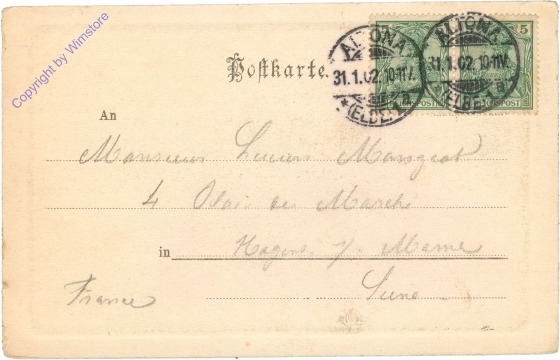 Copyright by Wimstore
Postkarte.
5
ALTONA
31.1.02.10-11V.
* (ELBE) 1 a
ALTONA
31.1.02.10-11V.
(ELBE) 1 a
REICHSPOST
REICHSPOST
An
Monsieur Lucien
4 Place du Marché
in Nogent s/ Marne
France Seine